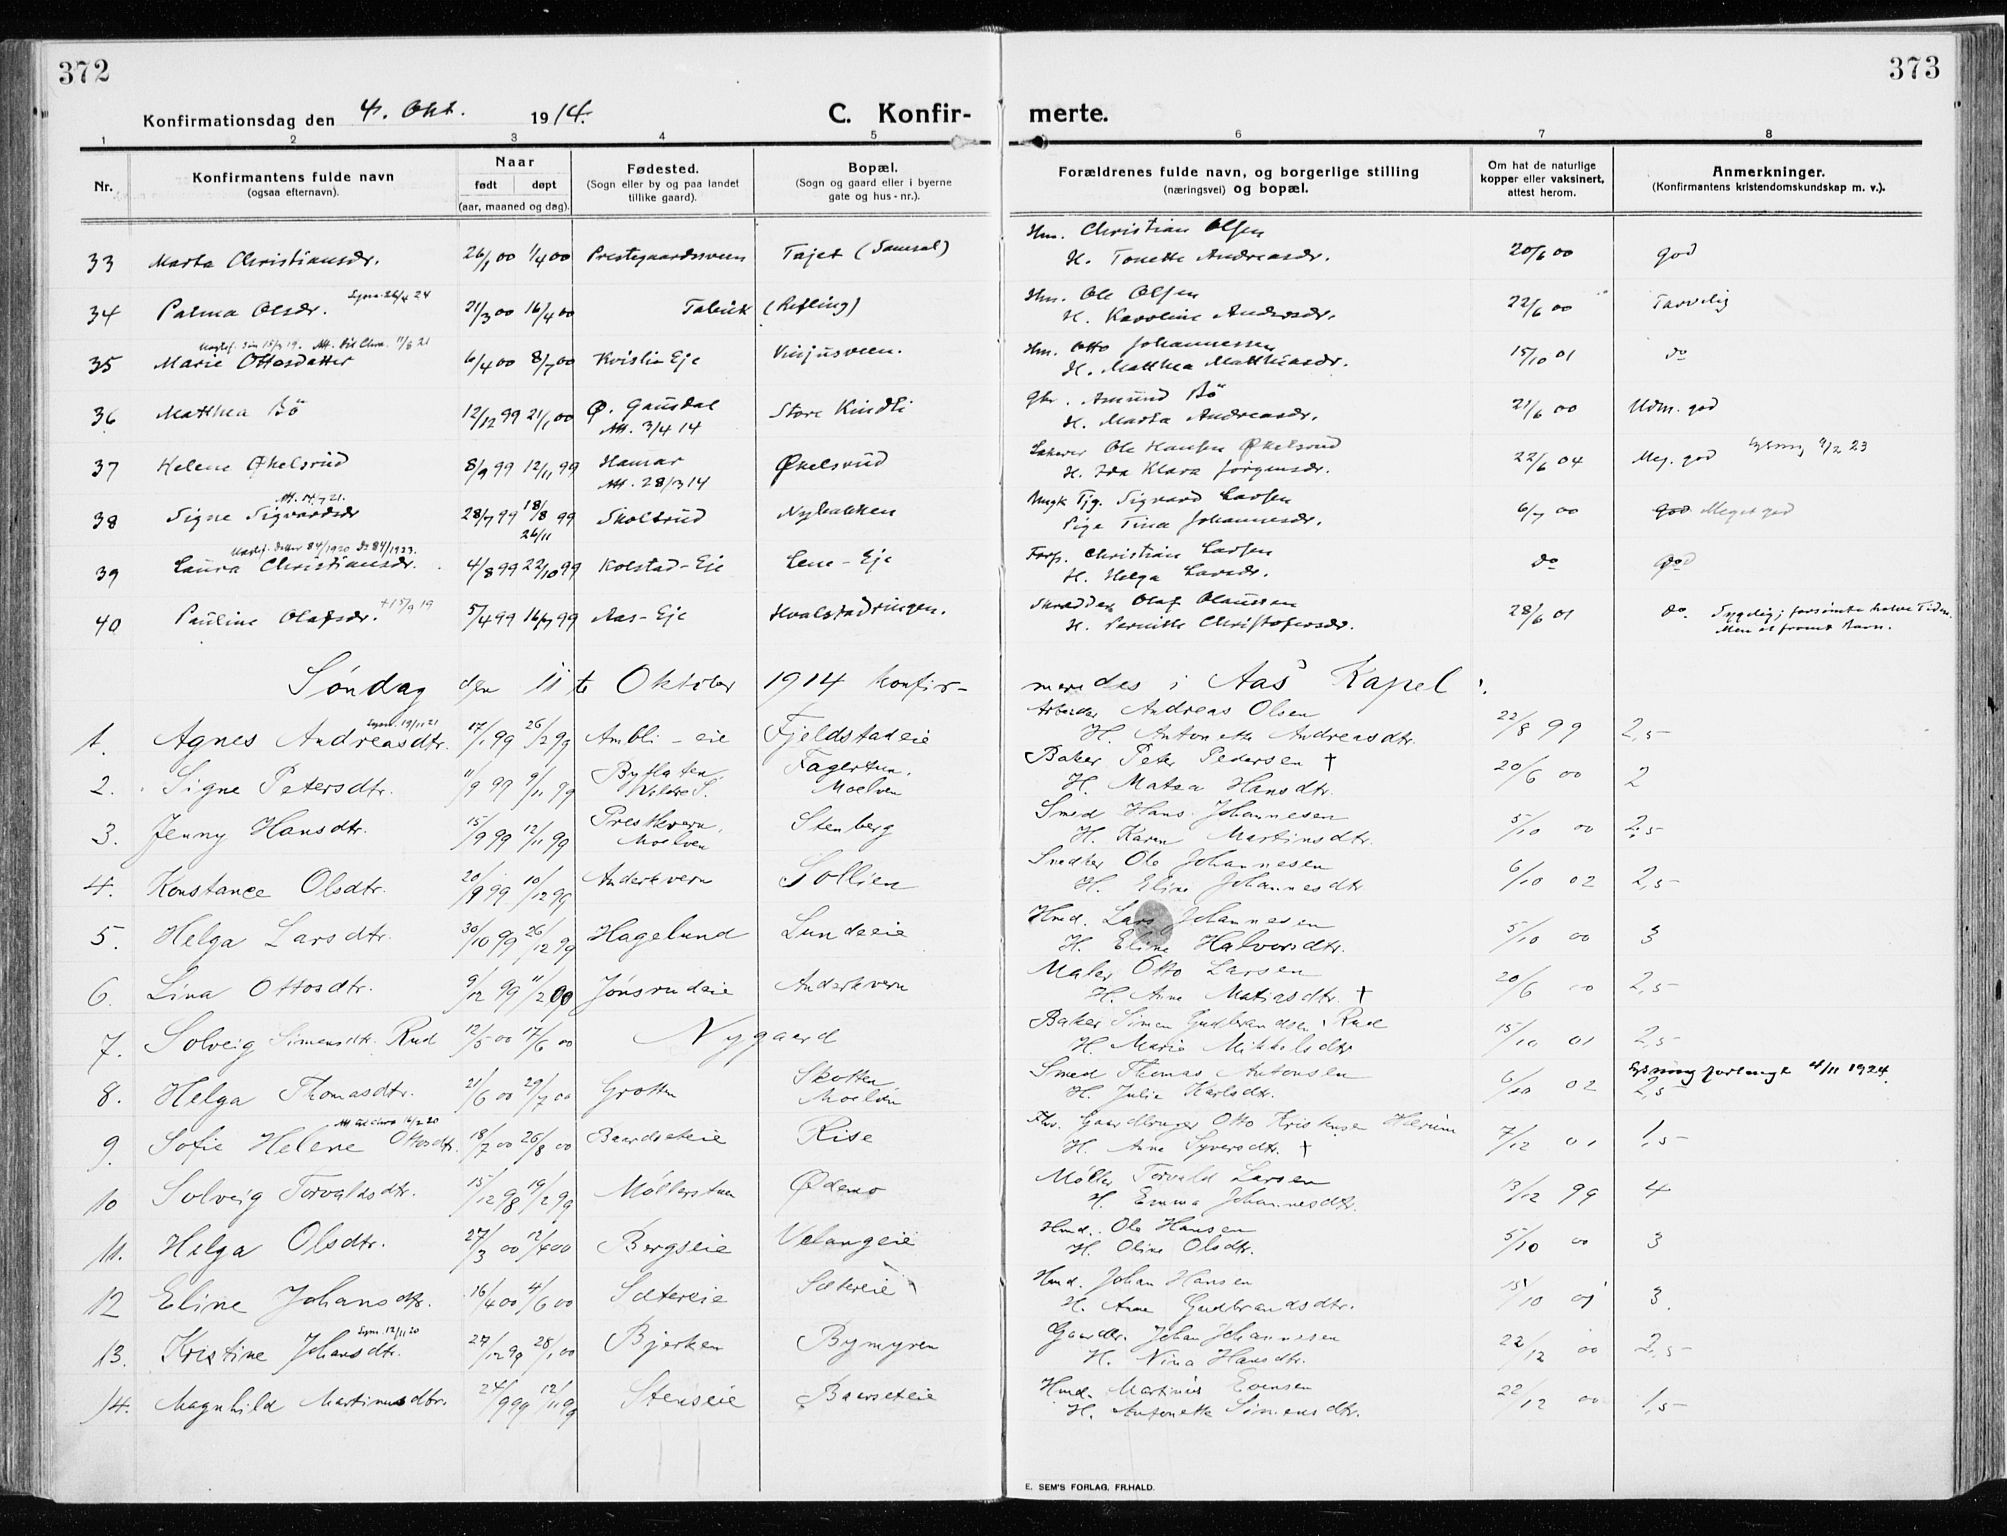 372
373
Konfirmationsdag den 4. Okt. 1914.
C. Konfir-
merte.
1 2 3 4 5 6 7 8
Nr.
Konfirmantens fulde navn
(ogsaa efternavn).
Naar
født døpt
(aar, maaned og dag).
Fødested.
(Sogn eller by og paa landet
tillike gaard).
Bopæl.
(Sogn og gaard eller i byerne
gate og hus-nr.).
Forældrenes fulde navn, og borgerlige stilling
(næringsvei) og bopæl.
Om hat de naturlige
kopper eller vaksinert,
attest herom.
Anmerkninger.
(Konfirmantens kristendomskundskap m. v.).
Hm. Christian Olsen
33 Marta Christiansdr. 26/1 00 1/4 00 Prestegaardssveen Tajet H. Tonette Andreasdr. 20/6 00 God
Hm. Ole Olsen
34 Palma Olsdr. 21/3 00 16/4 00 H. Karoline Andersdr. 22/6 00 Tarvelig
Hm. Otto Johannessen
35 Marie Ottosdatter 6/4 00 8/7 00 Kvistli Eje H. Matthea Matthiasdr. 15/10 01 do
Gbr. Amund Bö
36 Matthea Bö 12/12 99 21/1 00 Ø. Gausdal Store Kindli H. Marta Andreasdr. 21/6 00 Udm. god
Att. 3/4 14
Ole Hansen Økelsrud
37 Helene Økelsrud 8/9 99 12/11 99 Hamar Økelsrud H. Ida Klara Jörgensdr. 22/6 04 Meg. god
Ungk Tjg. Sigvard Larsen
38 Signe Sigvardsdr 28/7 99 18/8 99 Skolsrud Nybakken Pige Tina Johannesdr. 6/7 00 God Meget god
26/11
Forp. Christian Larsen
39 Laura Christiansdr. 4/8 99 22/10 99 Kolstad-Eje Lene-Eje H. Helga Larsdr. do God
Skrædder Olaf Olaussen
40 Pauline Olafsdr. +15/9 19 5/4 99 16/7 99 Aas-Eje Hvalstadringen. H. Pernille Christofersdr. 28/6 01 do.
Søndag den 11te Oktober 1914 konfir-
meredes i Aas Kapel:
Arbeider Andreas Olsen
1. Agnes Andreasdtr. 17/1 99 26/2 99 Ambli-eie Fjeldstadeie H. Antonette Andreasdtr. 22/8 99 2,5
Baker Peter Pedersen †
2. Signe Petersdtr. 11/9 99 9/11 99 Byflaten, Fagertun, Moelven H. Matea Hansdtr. 20/6 00 2
Smed Hans Johannesen
3. Jenny Hansdtr. 15/9 99 12/11 99 Prestkvern, Moelven Stenberg H. Karen Martinsdtr. 5/10 00 2,5
Snedker Ole Johannesen
4. Konstance Olsdtr. 20/9 99 10/12 99 Anderkvern Sollien H. Eline Johannesdtr. 6/10 02 2,5
Hmd. Lars Johannesen
5. Helga Larsdtr. 30/10 99 26/12 99 Hagelund Lundeeie H. Eline Halvorsdtr. 5/10 00 3
Maler Otto Larsen
6. Lina Ottosdtr. 9/12 99 11/2 00 Jønsrudeie Anderkvern H. Anne Matiasdtr. † 20/6 00 2,5
Baker Simen Gudbrandsen Rud
7. Solveig Simensdtr. Rud 12/5 00 17/6 00 Nygaard H. Marie Mikkelsdtr 15/10 01 2,5
Smed Thomas Antonsen
8. Helga Thomasdtr. 21/6 00 29/7 00 Grotten Skotten, Moelven H. Julie Karlsdtr. 6/10 02 2,5
Lysning forlangt 4/11 1924.
Fhv. Gaardbruger Otto Kristiansen
9. Sofie Helene Ottosdtr. 18/7 00 26/8 00 Baardseteie Rise H. Anne Syversdtr. † 7/12 01 1,5
Møller Torvald Larsen
10 Solveig Torvaldsdtr. 15/12 98 19/2 99 Møllerstuen Ødemo H. Emma Johannesdtr. 13/12 99 4
Hmd. Ole Hansen
11. Helga Olsdtr. 27/3 00 12/6 00 Bergseie Velangeie H. Oline Olsdtr. 5/10 00 3
Hmd. Johan Hansen
12 Eline Johansdtr. 16/4 00 4/6 00 Sætereie Sætereie H. Anne Gudbrandsdtr. 15/10 01 3.
Gaardbr. Johan Johannesen
13. Kristine Johansdtr. 27/12 99 28/1 00 Bjerken Bymyren H. Nina Hansdtr. 22/12 00 2,5
Hmd. Martinus Evensen
14. Magnhild Martinusdtr. 24/9 99 12/11 99 Stenseie Baarseteie H. Antonette Simensdtr. 22/12 00 1,5
E. SEM'S FORLAG, FR.HALD.